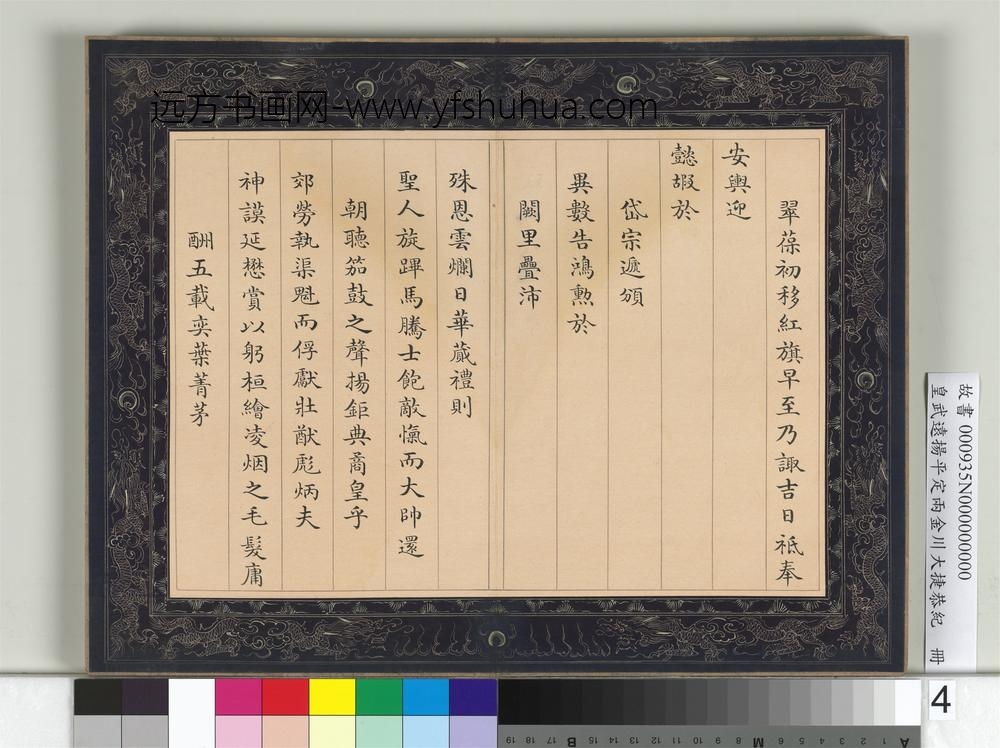 远方书画网-www.yfshuhua.com
翠葆初移紅旗早至乃諏吉日祗奉
安輿迎
懿嘏於
岱宗遞頒
異數告鴻勲於
闕里疊沛
殊恩雲爛日華蕆禮則
聖人旋蹕馬騰士飽敵愾而大帥還
朝聽笳鼓之聲揚鉅典矞皇乎
郊勞執渠魁而俘獻壯猷彪炳夫
神謨延懋賞以躬桓繪凌烟之毛髮庸
酬五載奕葉菁茅
故書 000935N000000000
皇武遠揚平定兩金川大捷恭紀 冊
4